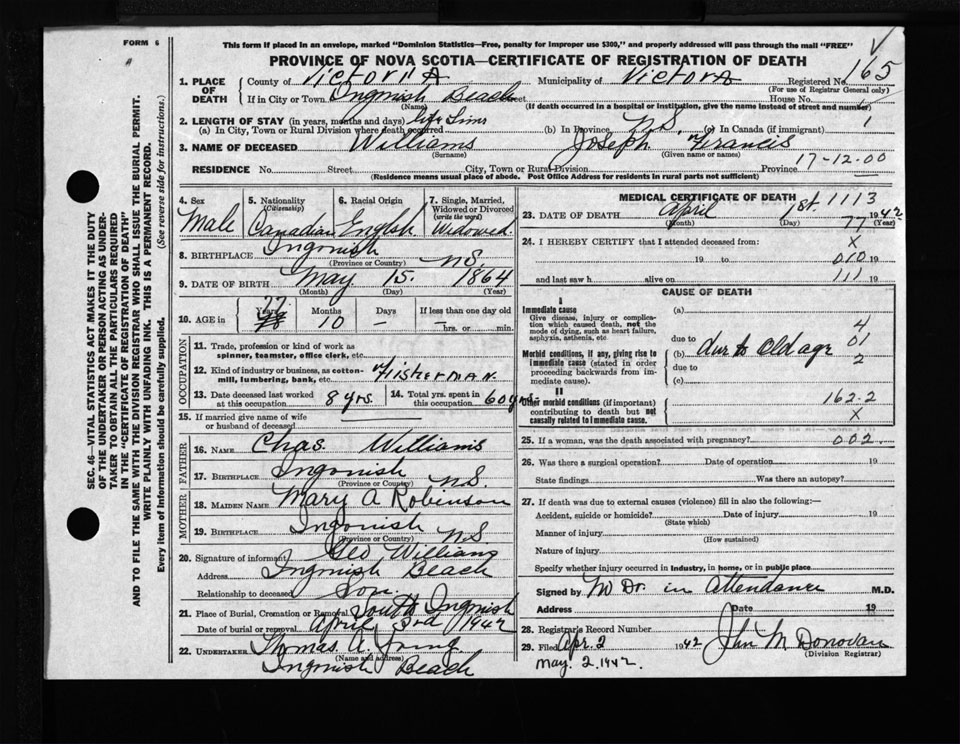 FORM 6
This form if placed in an envelope, marked "Dominion Statistics—Free, penalty for improper use $300," and properly addressed will pass through the mail "FREE"
PROVINCE OF NOVA SCOTIA—CERTIFICATE OF REGISTRATION OF DEATH
1. PLACE OF DEATH County of Victoria Municipality of Victoria Registered No. 165
(For use of Registrar General only)
If in City or Town Ingonish Beach Street House No.
(Name) (If death occurred in a hospital or institution, give the name instead of street and number)
2. LENGTH OF STAY (in years, months and days) life time
(a) In City, Town or Rural Division where death occurred (b) In Province N.S. (c) In Canada (if immigrant) 1
3. NAME OF DECEASED Williams Joseph Francis
(Surname) (Given name or names)
17-12-00
RESIDENCE No. Street City, Town or Rural Division Province
(Residence means usual place of abode. Post Office Address for residents in rural parts not sufficient)
4. Sex Male
5. Nationality (Citizenship) Canadian
6. Racial Origin English
7. Single, Married, Widowed or Divorced (write the word) Widowed
8. BIRTHPLACE Ingonish N.S.
(Province or Country)
9. DATE OF BIRTH May 15 1864
(Month) (Day) (Year)
10. AGE in 77 Years 78 Months 10 Days — If less than one day old — hrs. or min.
OCCUPATION
11. Trade, profession or kind of work as spinner, teamster, office clerk, etc.
12. Kind of industry or business, as cotton-mill, lumbering, bank, etc. Fisherman
13. Date deceased last worked at this occupation 8 yrs.
14. Total yrs. spent in this occupation 60 yrs.
15. If married give name of wife or husband of deceased
FATHER
16. NAME Chas. Williams
17. BIRTHPLACE Ingonish N.S.
(Province or Country)
MOTHER
18. MAIDEN NAME Mary A Robinson
19. BIRTHPLACE Ingonish N.S
(Province or Country)
20. Signature of informant Geo Williams
Address Ingonish Beach
Relationship to deceased Son
21. Place of Burial, Cremation or Removal South Ingonish
Date of burial or removal April 3rd 1942
22. UNDERTAKER Thomas A.
(Name and address)
Ingonish Beach
MEDICAL CERTIFICATE OF DEATH
23. DATE OF DEATH April 1st 1942
(Month) (Day) (Year)
1113
77
24. I HEREBY CERTIFY that I attended deceased from: X
19 to 010 19
and last saw h alive on 111 19
CAUSE OF DEATH
I
Immediate cause
Give disease, injury or complication which caused death, not the mode of dying, such as heart failure, asphyxia, asthenia, etc
(a)
due to 4
01
Morbid conditions, if any, giving rise to immediate cause (stated in order proceeding backwards from immediate cause).
(b) due to Old age
due to 2
(c)
II
Other morbid conditions (if important) contributing to death but not causally related to immediate cause.
162.2
X
25. If a woman, was the death associated with pregnancy? 002
26. Was there a surgical operation? Date of operation 19
State findings Was there an autopsy?
27. If death was due to external causes (violence) fill in also the following:—
Accident, suicide or homicide? Date of injury 19
(State which)
Manner of injury
(How sustained)
Nature of injury
Specify whether injury occurred in industry, in home, or in public place
Signed by No Dr. in attendance M.D.
Address Date 19
28. Registrar's Record Number
29. Filed Apr. 2 1942 John M Donovan
(Division Registrar)
May 2, 1942
SEC. 46—VITAL STATISTICS ACT MAKES IT THE DUTY
OF THE UNDERTAKER OR PERSON ACTING AS UNDER-
TAKER TO OBTAIN ALL THE PARTICULARS REQUIRED
IN THE "CERTIFICATE OF REGISTRATION OF DEATH"
AND TO FILE THE SAME WITH THE DIVISION REGISTRAR WHO SHALL ISSUE THE BURIAL PERMIT.
WRITE PLAINLY WITH UNFADING INK. THIS IS A PERMANENT RECORD.
Every item of information should be carefully supplied. (See reverse side for instructions.)